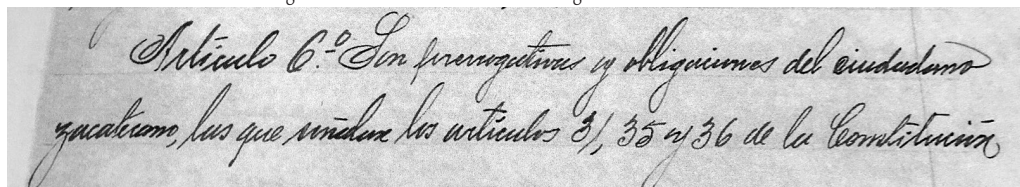 Artículo 6.º Son prerrogativas y obligaciones del ciudadano
zacatecano, las que señalan los artículos 31, 35 y 36 de la Constitución